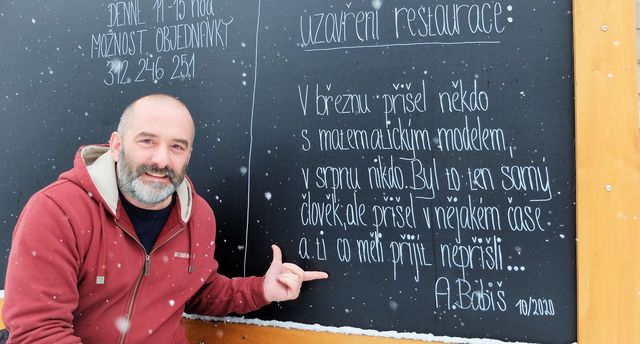 DENNĚ 11-15 hod
MOŽNOST OBJEDNÁVKY
312 246 251
uzavření restaurace:
V březnu přišel někdo
s matematickým modelem,
v srpnu nikdo. Byl to ten samý
člověk, ale přišel v nějakém čase
a ti co měli přijít nepřišli...
A. Babiš 10/2020